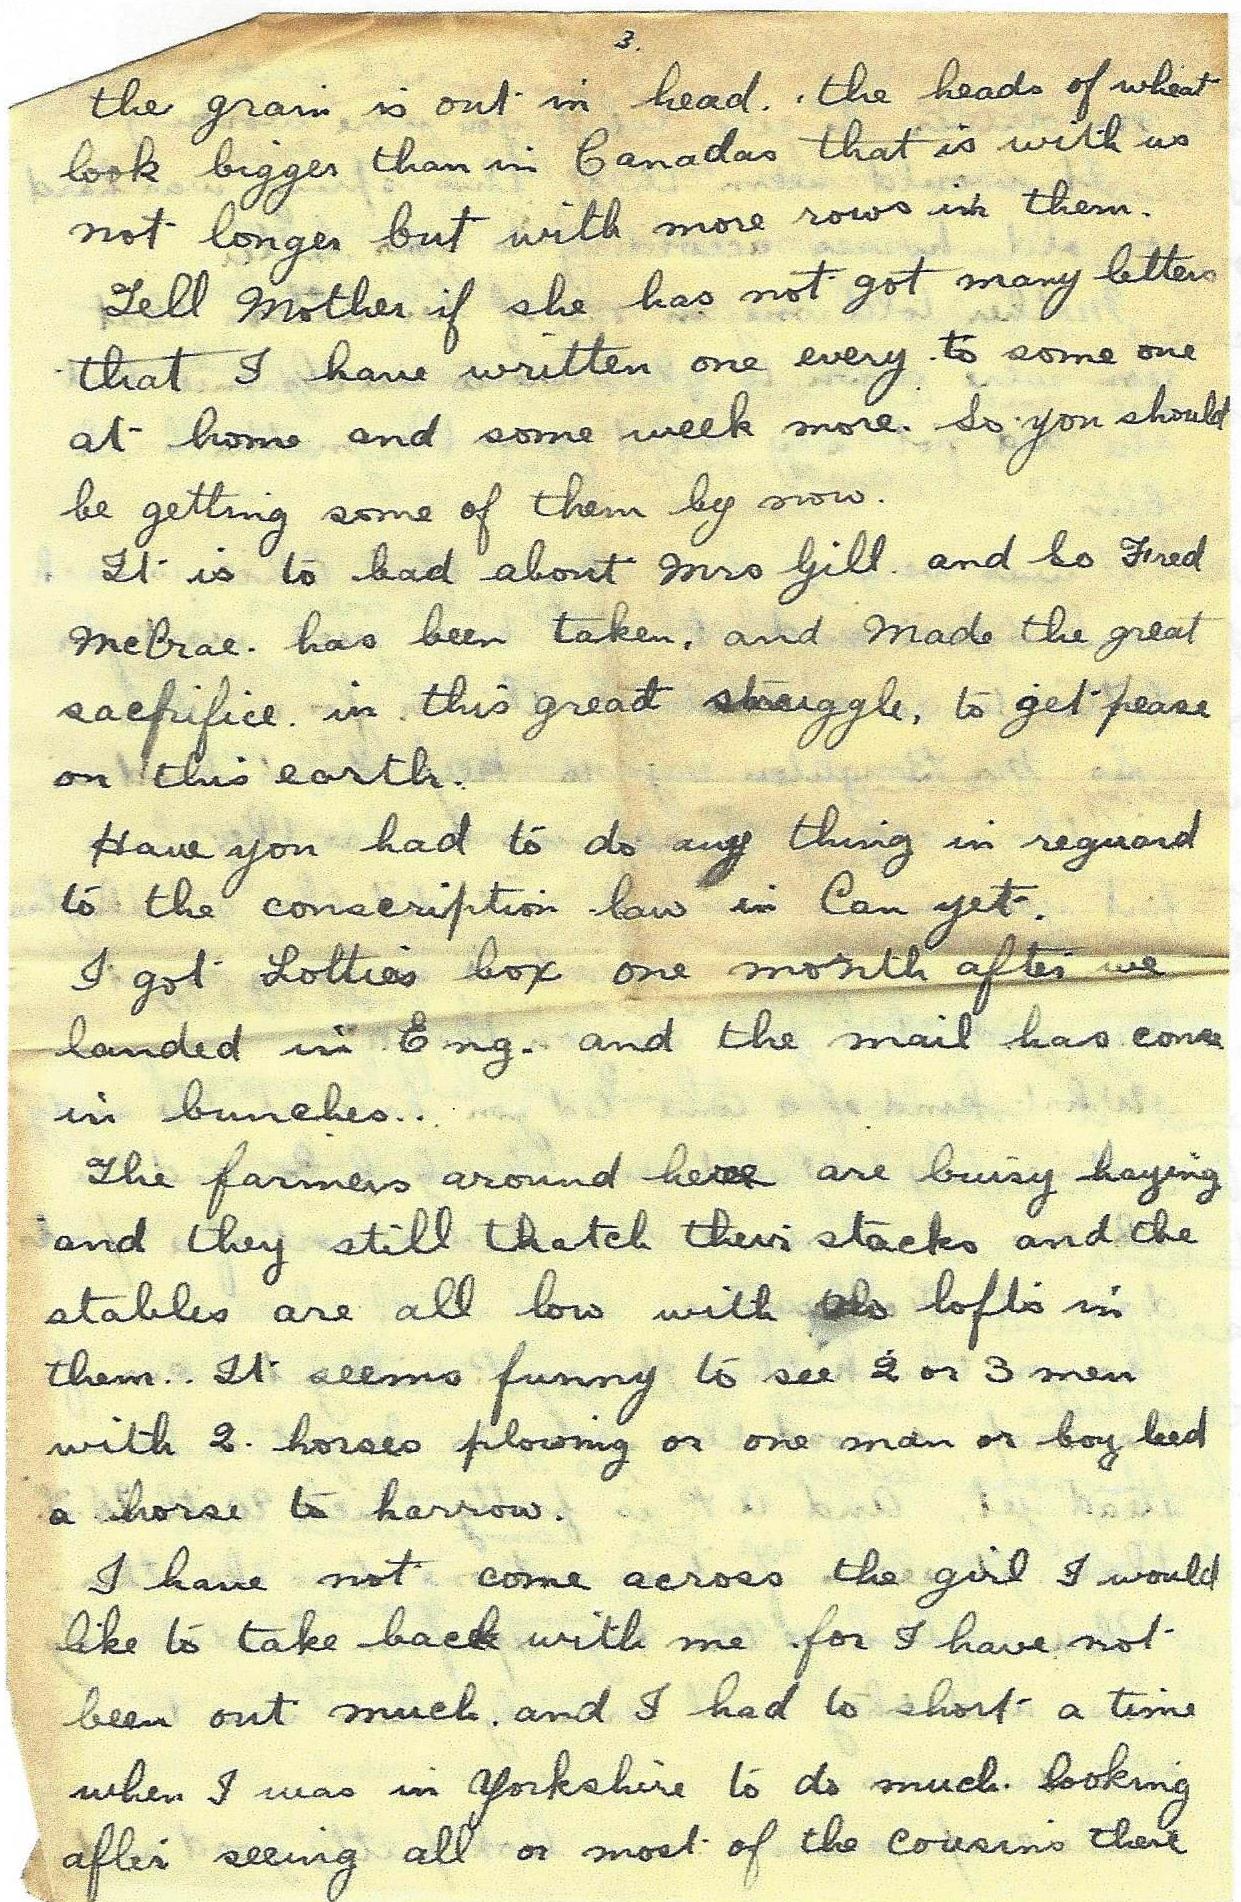 3.
the grain is out in head. the heads of wheat
look bigger than in Canadas that is with us
not longer but with more rows in them.
Tell Mother if she has not got many letters
that I have written one every to some one
at home and some week more. So you should
be getting some of them by now.
It is to bad about Mrs Gill. and so Fred
McCrae. has been taken, and made the great
sacfrifice. in this great struggle, to get pease
on this earth.
Have you had to do any thing in reguard
to the conscription law in Can yet.
I got Lotties box one month after we
landed in Eng. and the mail has come
in bunches..
The farmers around here are buisy haying
and they still thatch their stacks and the
stables are all low with no lofts in
them.. It seems funny to see 2 or 3 men
with 2. horses plowing or one man or boy leed
a horse to harrow.
I have not come across the girl I would
like to take back with me for I have not
been out much. and I had to short a time
when I was in Yorkshire to do much. looking
after seeing all or most of the cousins there